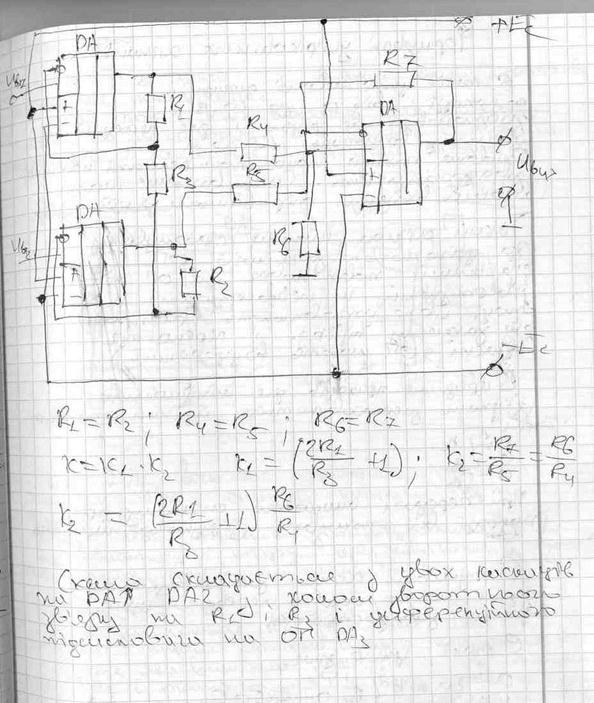 +Ec
DA
R7
Uвх
R1
R4
DA
R3
R5
Uвих
DA
Uвх
R6
R2
-Ec
R1=R2 ; R4=R5 ; R6=R7
K=K1·K2 K1=(2R1/R3+1) ; K2=R7/R5=R6/R4
K2 = (2R1/R3+1) R6/R4
Схема складається з двох каскадів
на DA1 DA2 з колом зворотнього
зв'язку на R1 і R3 і диференційного
підсилювача на ОП DA3